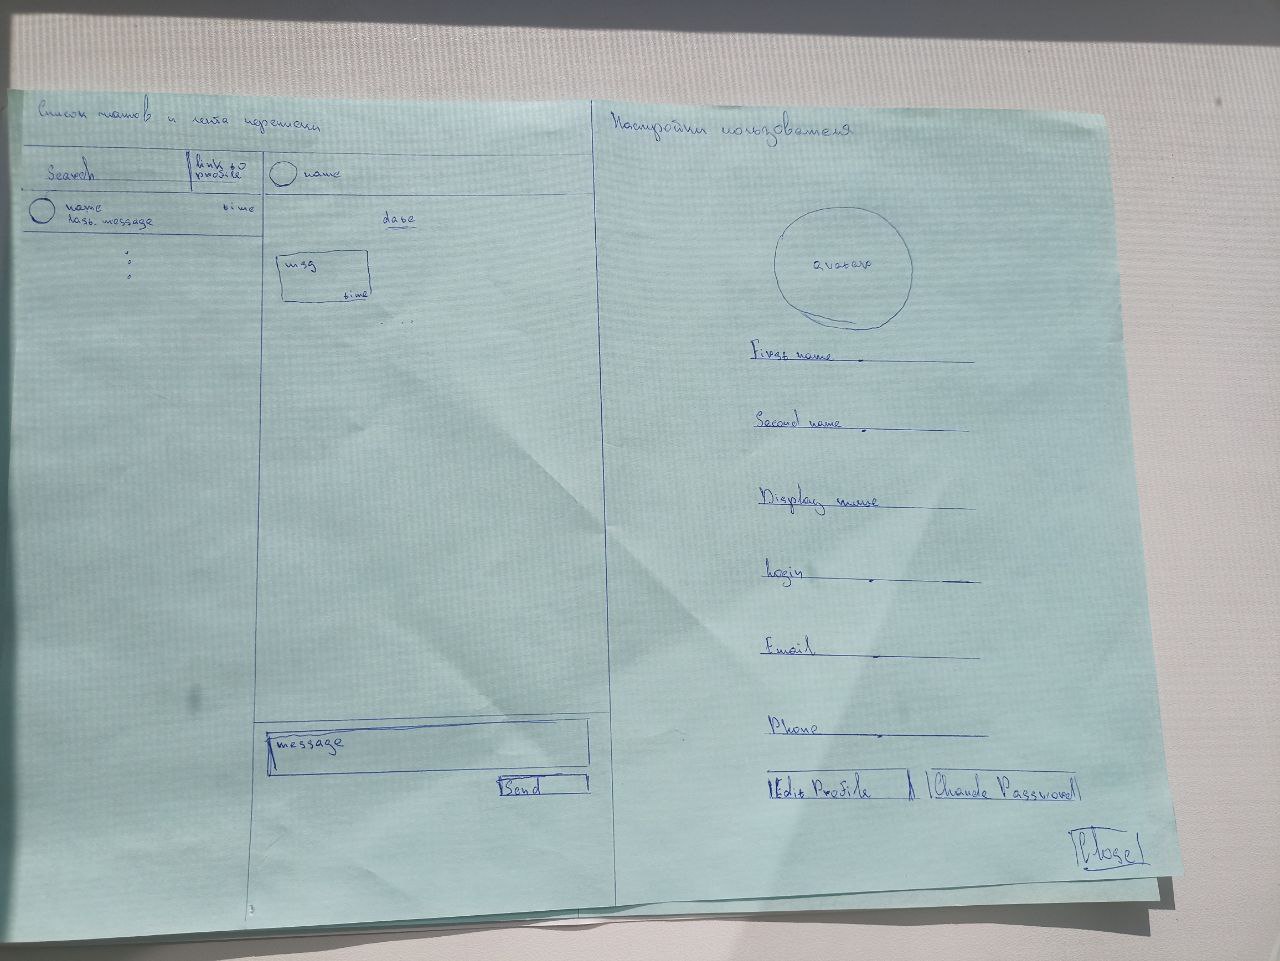 Список чатов и лента переписки
Search
link to
profile
name
name
time
last message
date
msg
time
message
Send
Настройки пользователя
avatar
First name
Second name
Display name
Login
Email
Phone
Edit Profile
Chande Password
Close